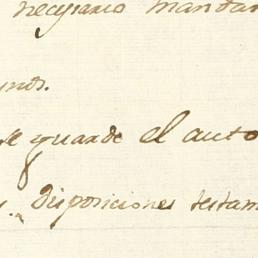 necesario mandar
se guarde el auto
Disposiciones testam